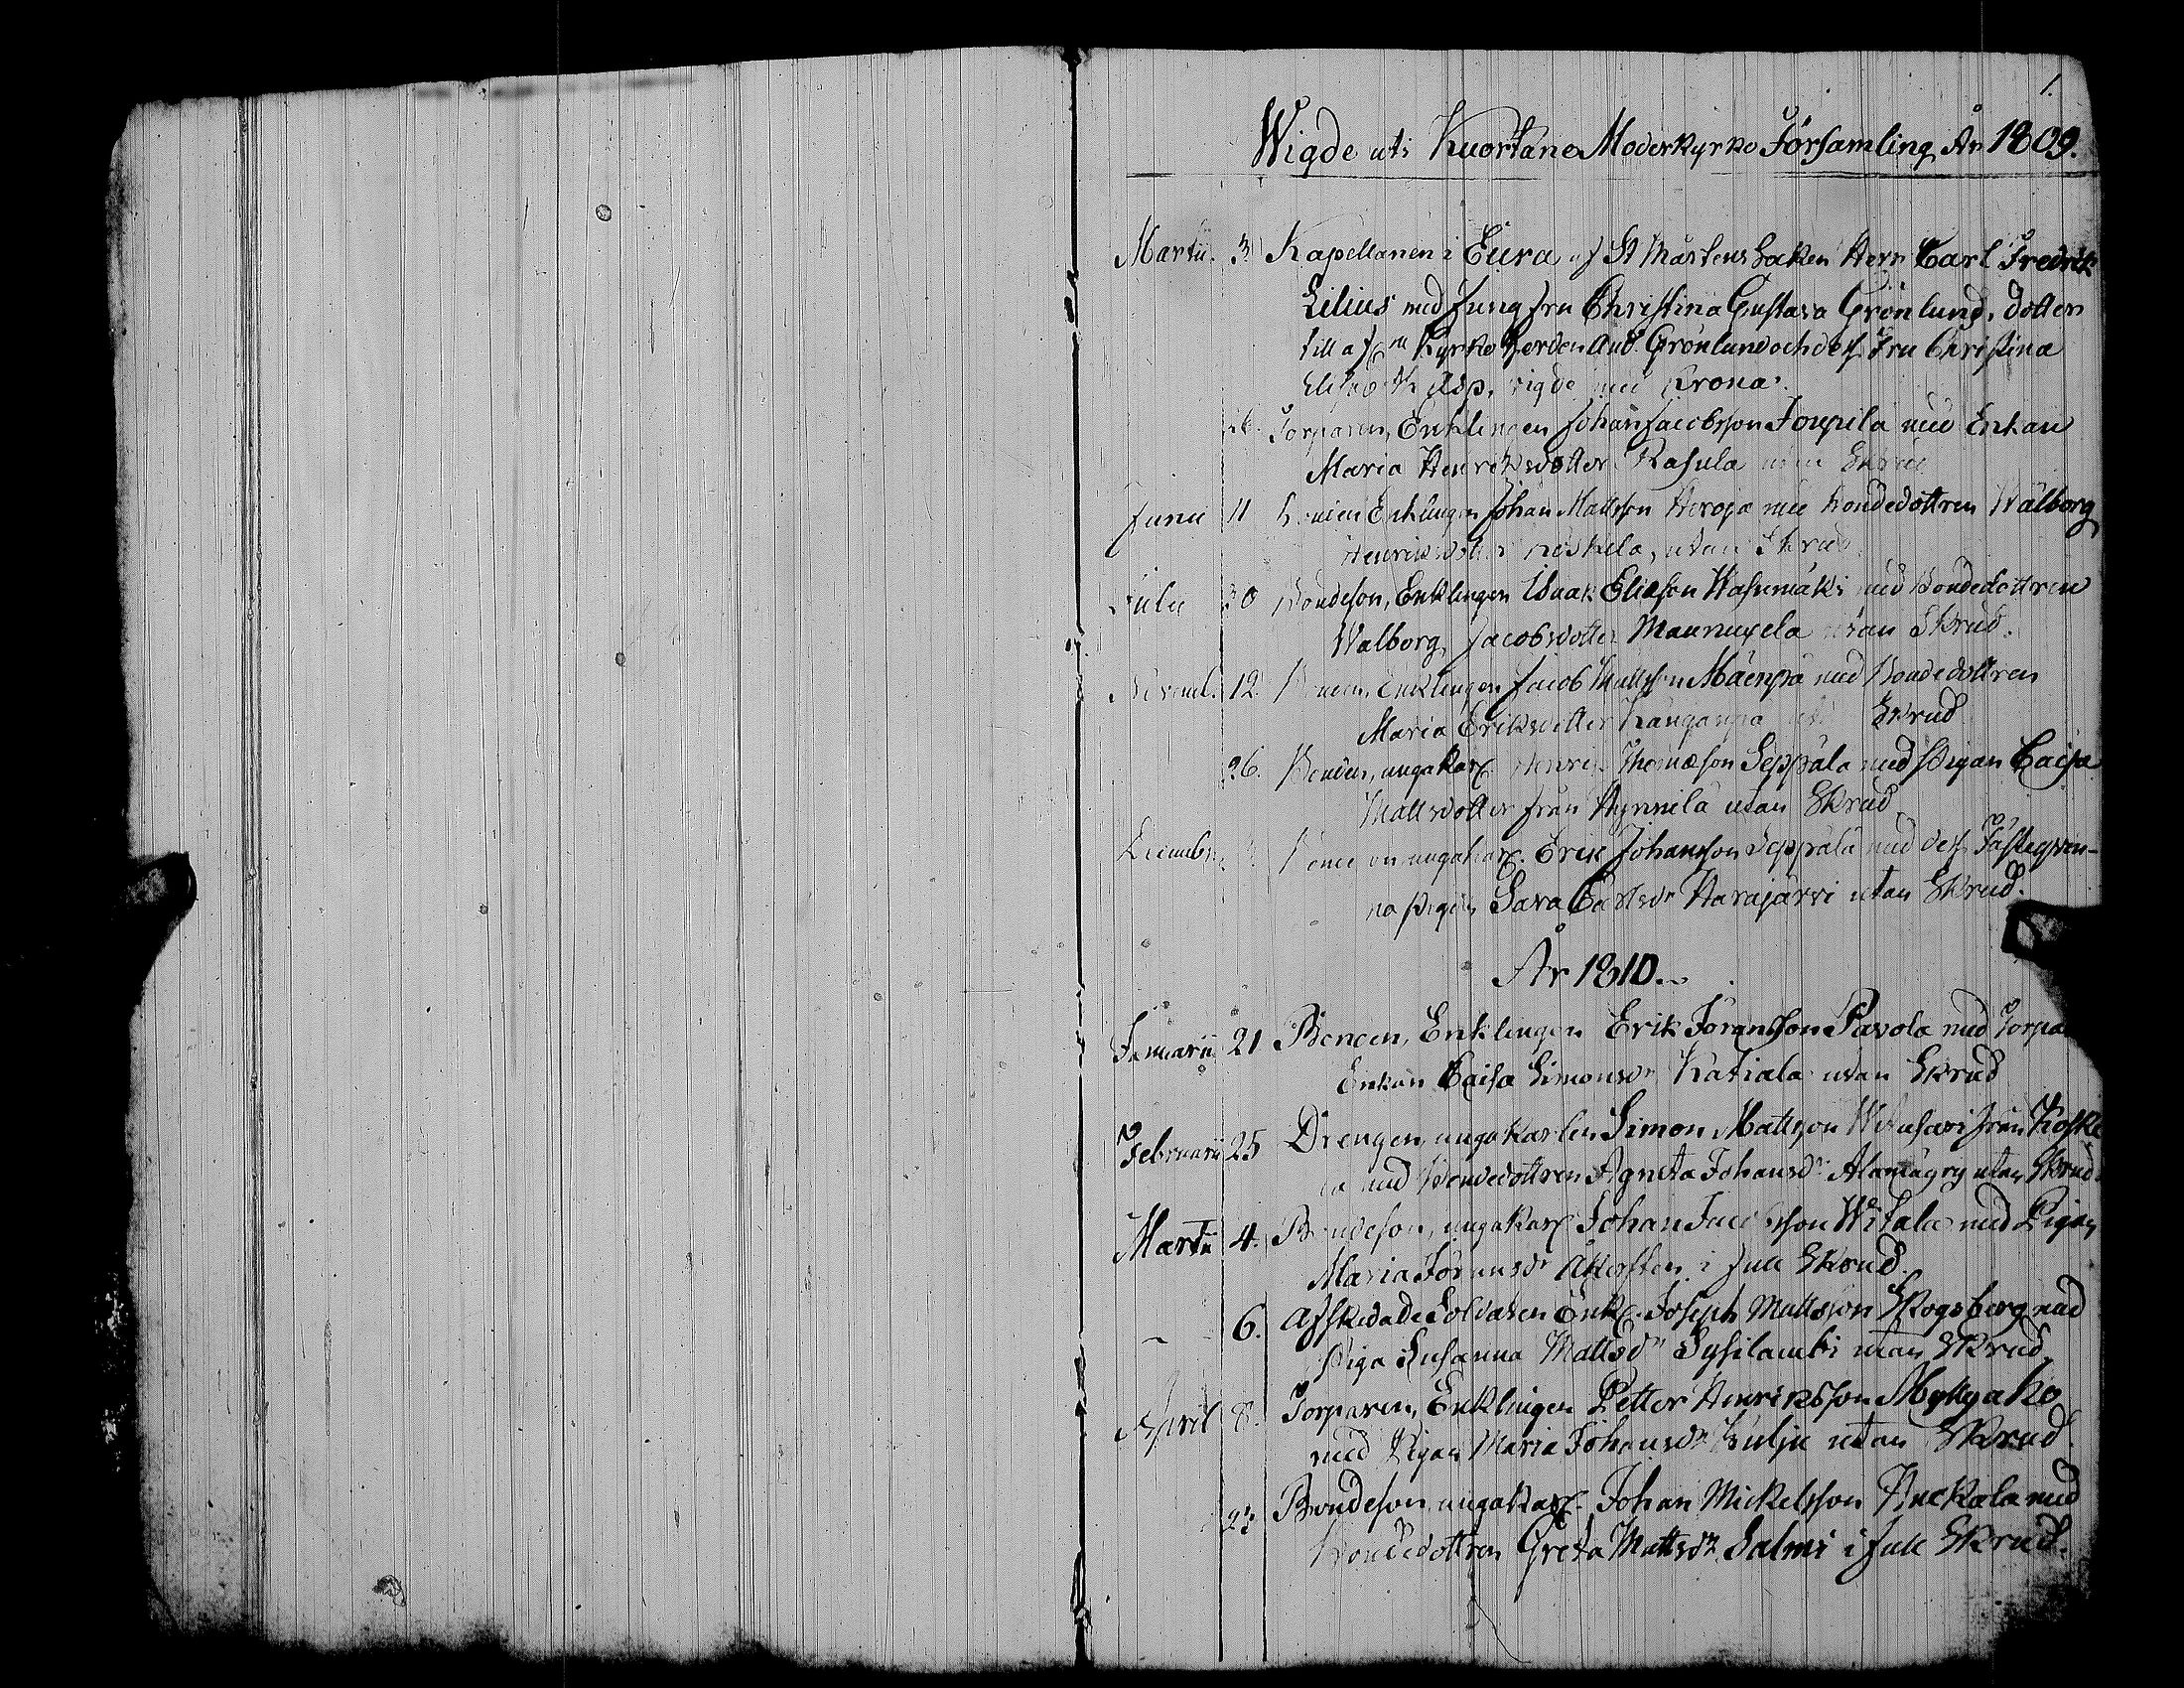 1.
Wigde uti Kuortane Moderkyrko Församling År 1809.
Martii. 3 Kapellanen i Eura af St Mårtens Socken Herr Carl Fredrik
Lilius med Jungfru Christina Gustava Grönlund, dotter
till Kyrkoherden And. Grönlund och dess Fru Christina
Elisabeth Asp, vigde med Krona.
Torparen, Enklingen Johan Jacobsson Joupila med Enkan
Maria Henriksdotter Kasula utan Skrud
Junii 11 Bonden Enklingen Johan Mattsson Heroja med bondedottren Walborg
Henriksdotter Keskila, utan Skrud
Julii 30 Bondeson, Enklingen Isaak Eliason Wasumäki med Bondedottren
Walborg Jacobsdotter Maunuxela utan Skrud.
Novemb. 12. Bonden, Enklingen Jacob Mattsson Mäenpä med Bondedottren
Maria Eriksdotter Kanganpä utan Skrud
26. Bonden, ungakarl. Henric Thomæson Seppälä med Pigan Caisa
Mattsdotter från Hynnilä utan Skrud
Decembr. ungakarl. Eric Johansson Seppälä med dess Fästeqvin-
na Pigan Sara Carlsdr Harajärvi utan Skrud.
År 1810.
Januarii 21 Bonden, Enklingen Erik Göransson Pavola med
Enkan Caisa Simonsdr Katiala utan Skrud
Februarii 25 Drengen, ungakarlen Simon Mattsson från Koske
la med Bondedottren Agneta Johansdr utan Skrud
Martii 4. Bondeson, ungakarl Johan Jacobsson Witala med Pigan
Maria Göransdr Åkersten i full Skrud.
6. Afskedade Soldaten Enkl. Joseph Mattsson Skogsberg med
Piga Susanna Mattsdr Sysilambi utan Skrud
April 8. Torparen, Enklingen Petter Henriksson Myllyaho
med Pigan Maria Johansdr Kulju utan Skrud
23 Bondeson, ungakarl. Johan Mickelsson Ruckala med
Bondedottren Greta Mattsdr Salmi i full Skrud.